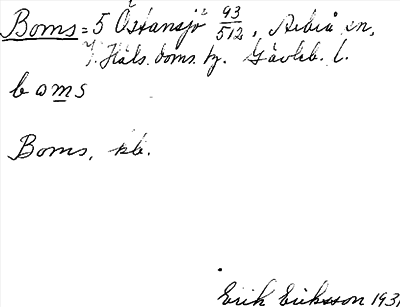 Boms = 5 Östansjö 93/512, Arbrå sn,
V. Häls. doms. hg. Gävleb. l.
boms
Boms, kb.
Erik Eriksson 1931